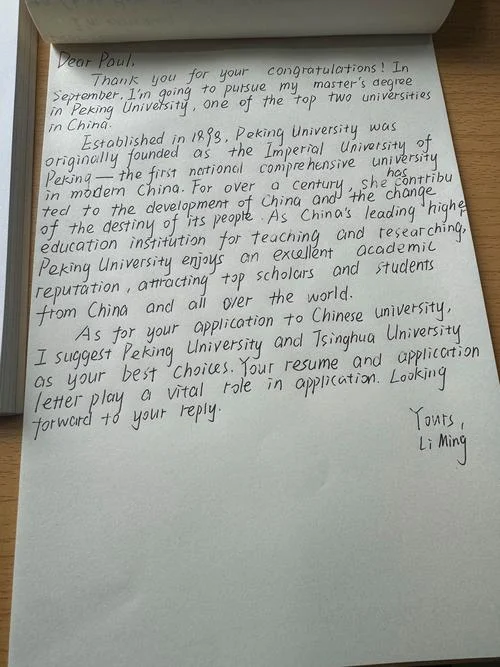 Dear Paul,
Thank you for your congratulations! In
September, I'm going to pursue my master's degree
in Peking University, one of the top two universities
in China.
Established in 1898, Peking University was
originally founded as the Imperial University of
Peking — the first national comprehensive university
in modern China. For over a century, she has contribu
ted to the development of China and the change
of the destiny of its people. As China's leading highe
education institution for teaching and researching,
Peking University enjoys an excellent academic
reputation, attracting top scholars and students
from China and all over the world.
As for your application to Chinese university,
I suggest Peking University and Tsinghua University
as your best choices. Your resume and application
letter play a vital role in application. Looking
forward to your reply.
Yours,
Li Ming